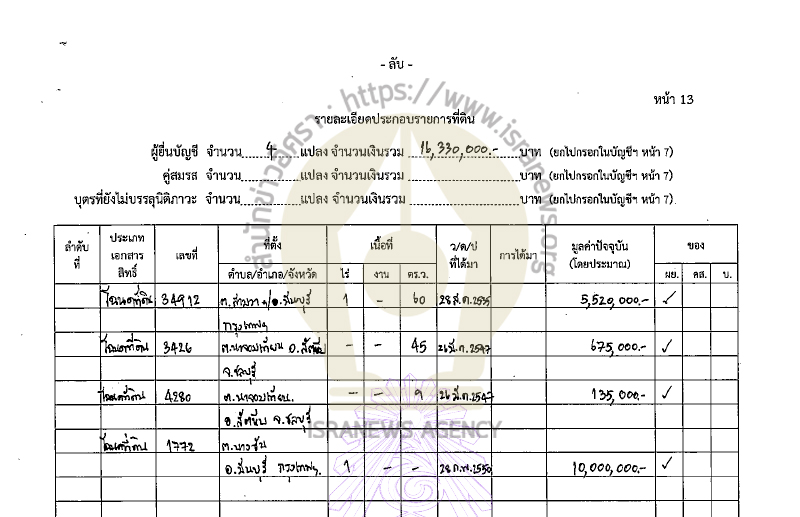 - ลับ -
หน้า 13
รายละเอียดประกอบรายการที่ดิน
ผู้ยื่นบัญชี จำนวน 4 แปลง จำนวนเงินรวม 16,330,000.- บาท (ยกไปกรอกในบัญชีฯ หน้า 7)
คู่สมรส จำนวน แปลง จำนวนเงินรวม บาท (ยกไปกรอกในบัญชีฯ หน้า 7)
บุตรที่ยังไม่บรรลุนิติภาวะ จำนวน แปลง จำนวนเงินรวม บาท (ยกไปกรอกในบัญชีฯ หน้า 7)
ลำดับที่ ประเภทเอกสารสิทธิ์ เลขที่ ที่ตั้ง เนื้อที่ ว/ด/ป ที่ได้มา การได้มา มูลค่าปัจจุบัน (โดยประมาณ) ของ
ตำบล/อำเภอ/จังหวัด ไร่ งาน ตร.ว. ผย. คส. บ.
โฉนดที่ดิน 34912 อ.มีนบุรี 1 - 60 5,520,000.- ✓
กรุงเทพฯ
โฉนดที่ดิน 3426 ต.นาจอมเทียน อ.สัตหีบ - - 45 26 มี.ค. 2547 675,000.- ✓
จ.ชลบุรี
โฉนดที่ดิน 4280 ต.นาจอมเทียน. - - 9 26 มี.ค. 2547 135,000.- ✓
อ.สัตหีบ จ.ชลบุรี
โฉนดที่ดิน 1772 ต.บางชัน
อ.มีนบุรี กรุงเทพฯ. 1 - - 28 ก.พ. 2550 10,000,000.- ✓
สำนักข่าวอิศรา : https://www.isranews.org
ISRANEWS AGENCY